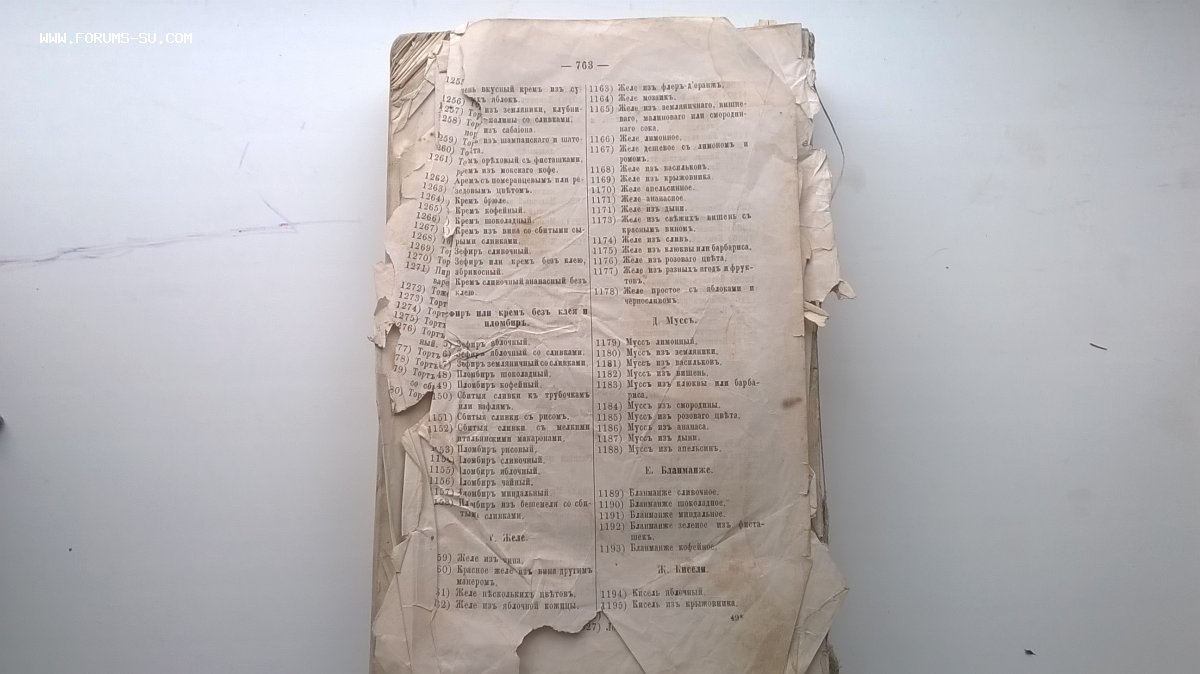 WWW.FORUMS-SU.COM
— 763 —
вкусный кремъ изъ су-
яблокъ.
изъ земляники, клубни-
малины со сливками.
изъ сабаіона.
изъ шампанскаго и шато-
орѣховый съ фисташками.
изъ мокскаго кофе.
съ померанцевымъ или ре-
зедовымъ цвѣтомъ.
Кремъ брюле.
Кремъ кофейный.
Кремъ шоколадный.
Кремъ изъ вина со сбитыми сы-
рыми сливками.
Зефиръ сливочный.
Зефиръ или кремъ безъ клею,
абрикосный.
Кремъ сливочный ананасный безъ
клею.
или кремъ безъ клея и
пломбиръ.
Зефиръ яблочный.
Зефиръ яблочный со сливками.
Зефиръ земляничный со сливками.
48) Пломбиръ шоколадный.
49) Пломбиръ кофейный.
150) Сбитыя сливки къ трубочкамъ
или вафлямъ.
1151) Сбитыя сливки съ рисомъ.
1152) Сбитыя сливки съ мелкими
итальянскими макаронами.
53) Пломбиръ рисовый.
Пломбиръ сливочный.
1155) Пломбиръ яблочный.
1156) Пломбиръ чайный.
1157) Пломбиръ миндальный
Пломбиръ изъ бешемеля со сби-
тыми сливками.
Желе.
59) Желе изъ вина.
60) Красное желе изъ вина другимъ
манеромъ.
61) Желе нѣсколькихъ цвѣтовъ.
62) Желе изъ яблочной кожицы.
1163) Желе изъ флеръ-д'оранжъ.
1164) Желе мозаикъ.
1165) Желе изъ земляничнаго, вишне-
ваго, малиноваго или смородин-
наго сока.
1166) Желе лимонное.
1167) Желе дешевое съ лимономъ и
ромомъ.
1168) Желе изъ васильковъ.
1169) Желе изъ крыжовника.
1170) Желе апельсинное.
1171) Желе ананасное.
1171) Желе изъ дыни.
1173) Желе изъ свѣжихъ вишень съ
краснымъ виномъ.
1174) Желе изъ сливъ.
1175) Желе изъ клюквы или барбариса.
1176) Желе изъ розоваго цвѣта.
1177) Желе изъ разныхъ ягодъ и фрук-
товъ.
1178) Желе простое съ яблоками и
черносливомъ.
Д. Муссъ.
1179) Муссъ лимонный.
1180) Муссъ изъ земляники.
1181) Муссъ изъ васильковъ.
1182) Муссъ изъ вишень.
1183) Муссъ изъ клюквы или барба-
риса.
1184) Муссъ изъ смородины.
1185) Муссъ изъ розоваго цвѣта.
1186) Муссъ изъ ананаса.
1187) Муссъ изъ дыни.
1188) Муссъ изъ апельсинъ.
Е. Бланманже.
1189) Бланманже сливочное.
1190) Бланманже шоколадное.
1191) Бланманже миндальное.
1192) Бланманже зеленое изъ фиста-
шекъ.
1193) Бланманже кофейное.
Ж. Кисели.
1194) Кисель яблочный.
1195) Кисель изъ крыжовника.
49*
1256)
1257) Тор
1258) Торт
1259) Тор
1261)
1262)
1263)
1264)
1265)
1266)
1267)
1268)
1269)
1270) Тор
1271) Пир
1272)
1273) Торт
1274) Торт
1275) Тортъ
1276) Тортъ
77) Тортъ
78) Тортъ
79) Тортъ
80) Тор